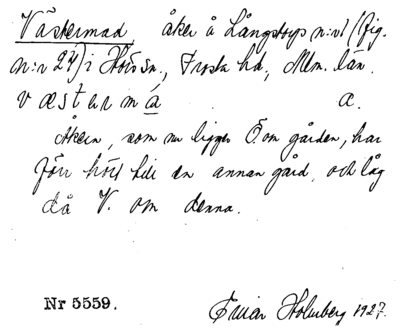 Västermad åker å Långstorps n:r 1 (fig.
n:r 24) i Hörs sn., Frosta hd, Mlm. län.
væstermá a.
Åkern, som nu ligger Ö. om gården, har
förr hört till en annan gård, och låg
då V. om denna.
Nr 5559.
Einar Holmberg 1927.